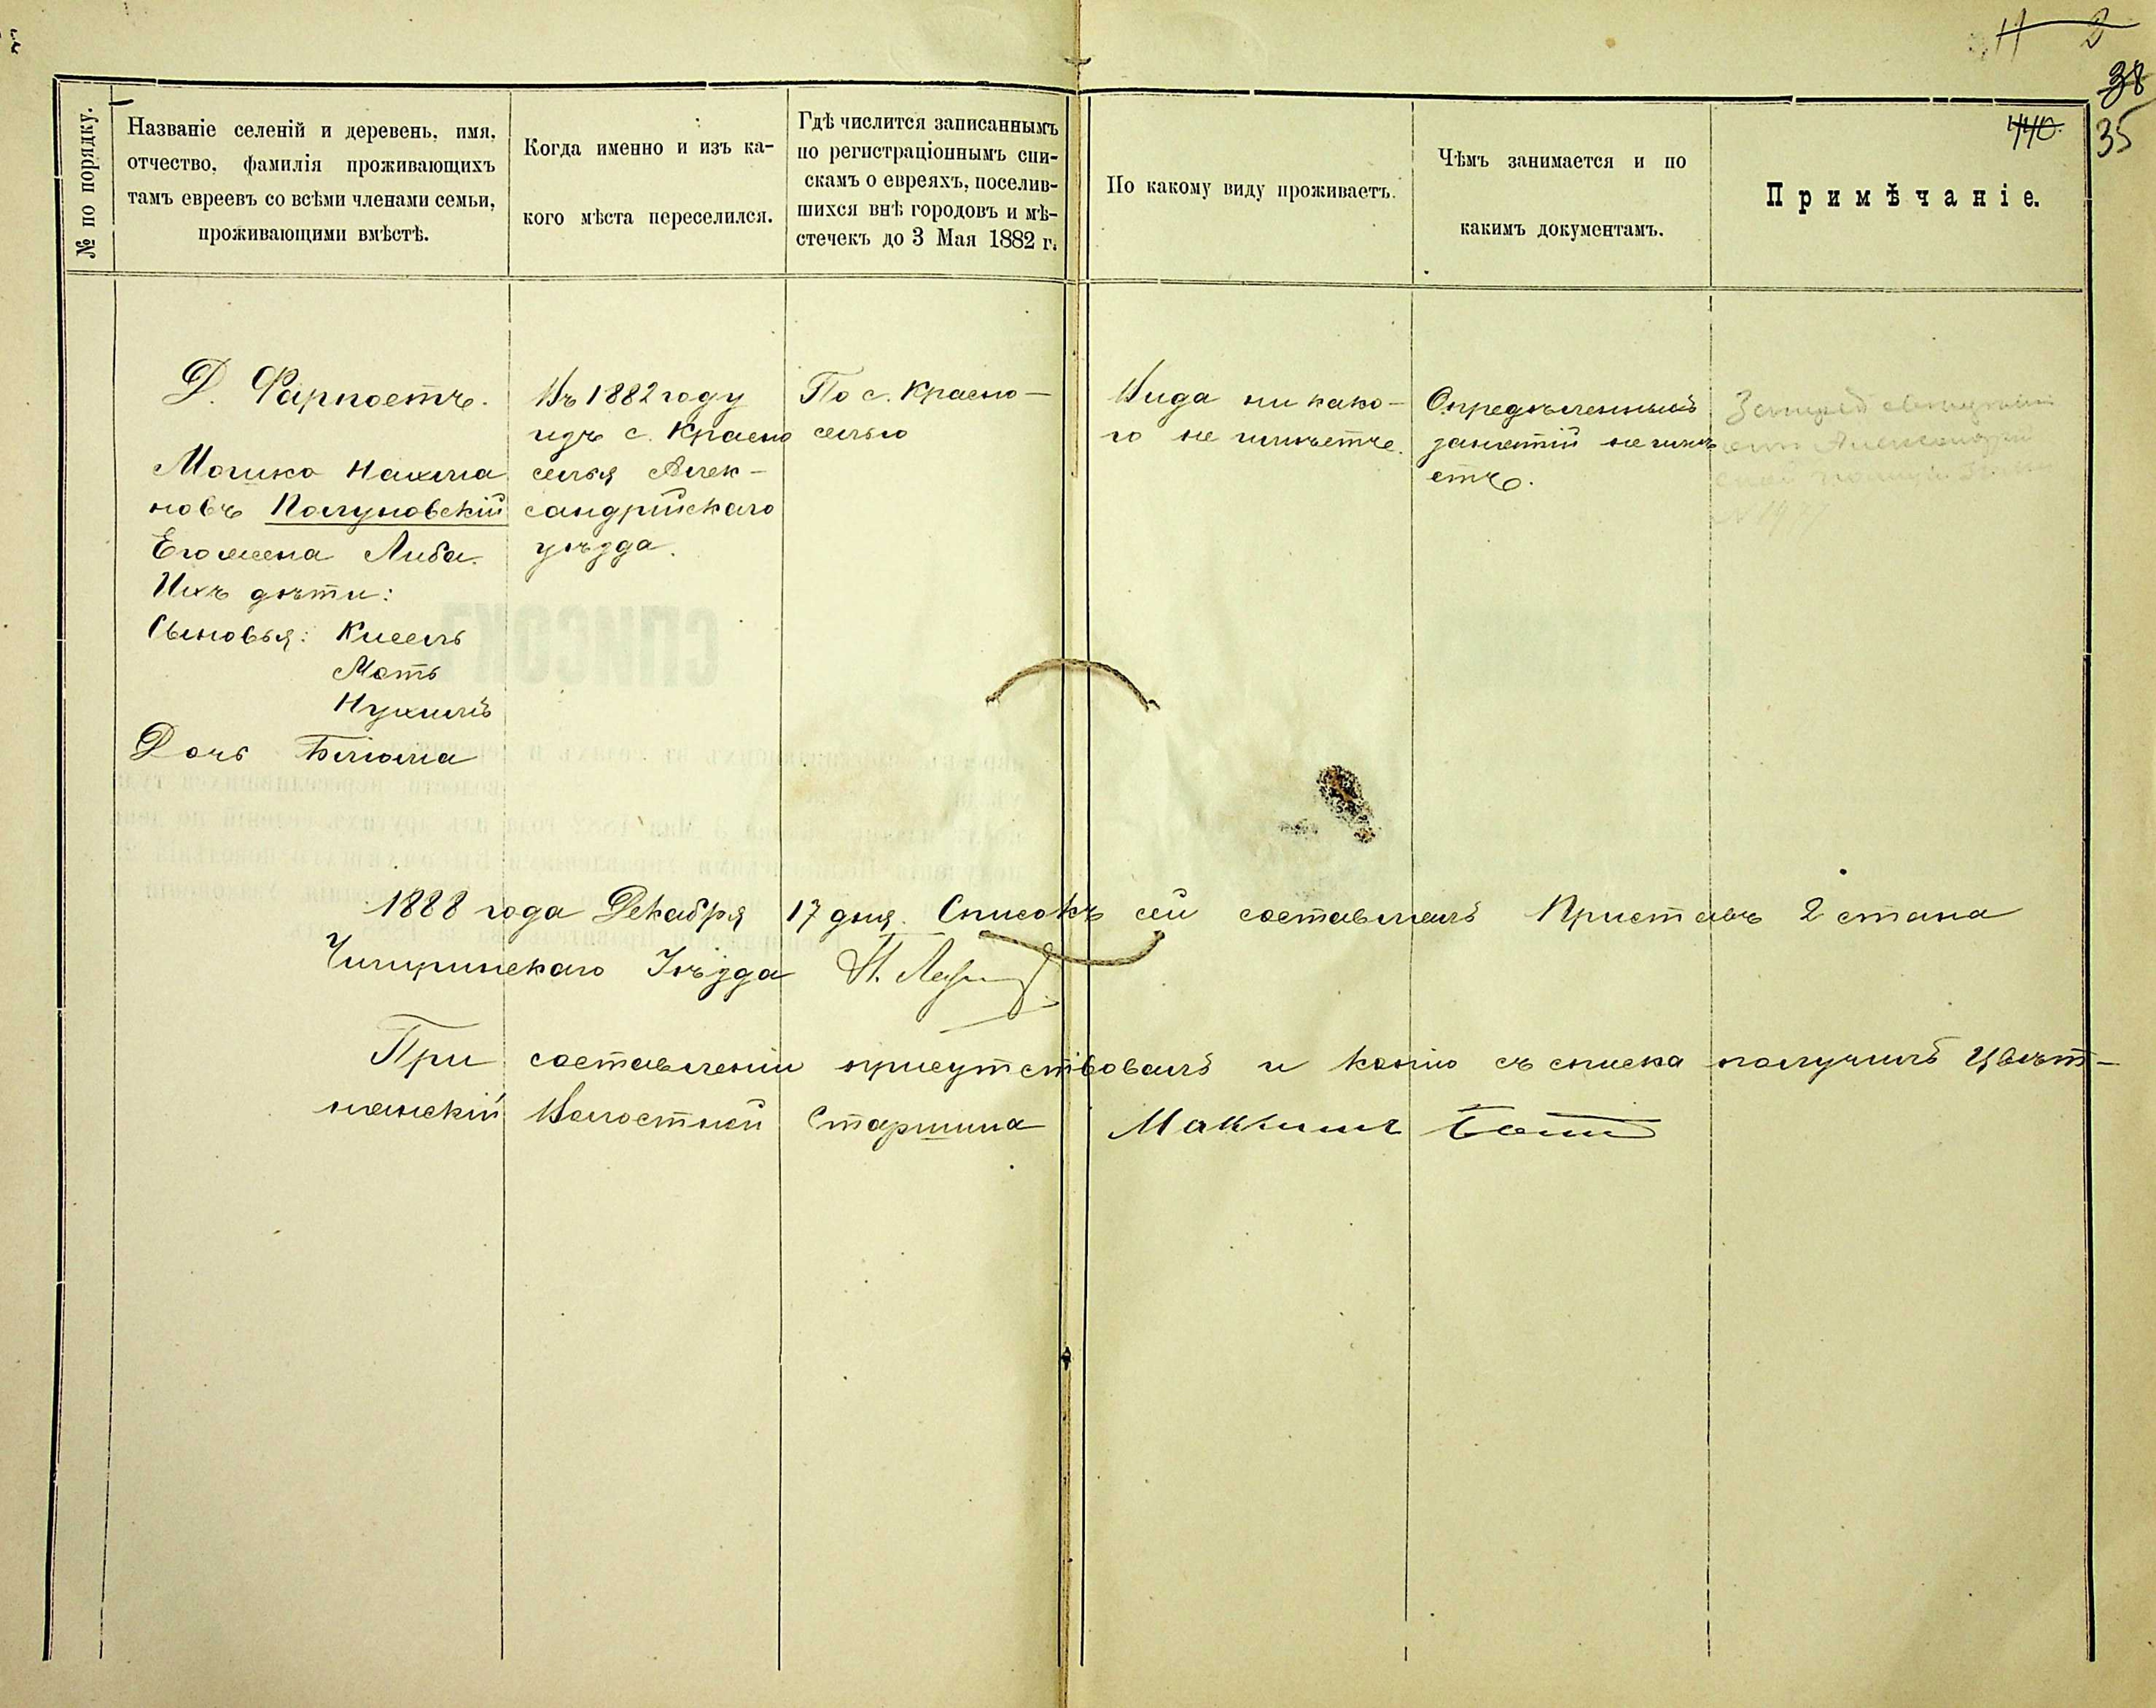 38
440.
35
№ по порядку.
Названіе селеній и деревень, имя,
отчество, фамилія проживающихъ
тамъ евреевъ со всѣми членами семьи,
проживающими вмѣстѣ.
Когда именно и изъ ка-
кого мѣста переселился.
Гдѣ числится записаннымъ
по регистраціоннымъ спи-
скамъ о евреяхъ, поселив-
шихся внѣ городовъ и мѣ-
стечекъ до 3 Мая 1882 г.
По какому виду проживаетъ.
Чѣмъ занимается и по
какимъ документамъ.
Примѣчаніе.
Д. Фарпостъ.
Мошко Нахма
новъ Полуновскій
Его жена Либа.
Ихъ дѣти:
Сыновья: Кисель
Моть
Нухимъ
Дочь Блюма
Въ 1882 году
изъ с. Красно
селья Алек-
сандрійскаго
уѣзда.
По с. Красно-
селью
Вида ни како-
го не имѣетъ.
Опредѣленныхъ
занятій не имѣ
етъ.
1888 года Декабря 17 дня. Списокъ сей составилъ Приставъ 2 стана
Чигиринскаго Уѣзда
При составленіи присутствовалъ и копію съ списка получилъ Цвѣт-
нянскій Волостной Старшина Максимъ